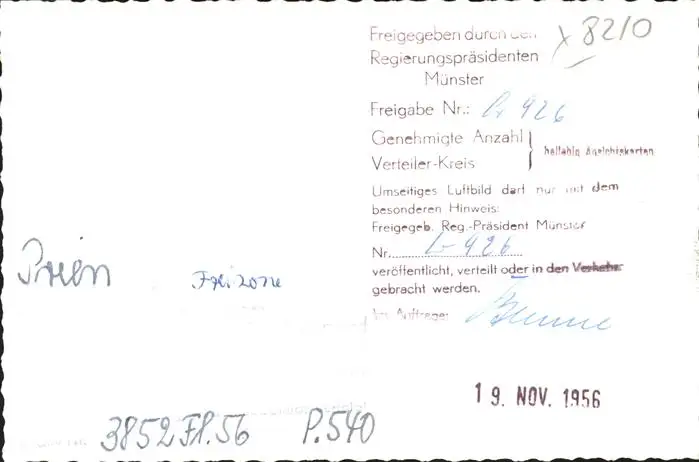 Freigegeben durch den
x 8210
Regierungspräsidenten
Münster
Freigabe Nr.: Lr 926
Genehmigte Anzahl
Verteiler-Kreis
beliebig Ansichtskarten
Umseitiges Luftbild darf nur mit dem
besonderen Hinweis:
Freigegeb. Reg.-Präsident Münster
Nr. Lr 926
veröffentlicht, verteilt oder in den Verkehr
gebracht werden.
Im Auftrage:
Prien
19. NOV. 1956
3852 Fl. 56 P. 540